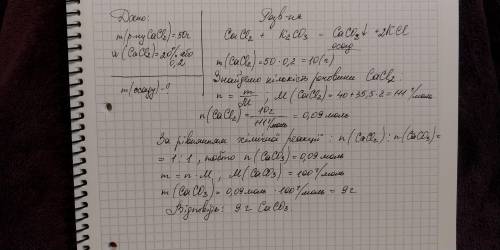 Дано:
m(р-ну CaCl2)=50г
w(CaCl2)=20% або
0,2
m(осаду)-?
Розв-ня
CaCl2 + K2CO3 - CaCO3↓ +2KCl
осад
m(CaCl2)=50·0,2=10(г)
Знайдемо кількість речовини CaCl2
n = m/M, M(CaCl2)=40+35,5·2=111 г/моль
n(CaCl2)= 10г/111 г/моль = 0,09 моль
За рівнянням хімічної реакції: n(CaCl2):n(CaCO3)=
= 1:1, тобто n(CaCO3)=0,09 моль
m = n·M, M(CaCO3)=100 г/моль
m(CaCO3)=0,09 моль · 100 г/моль = 9 г
Відповідь: 9 г CaCO3